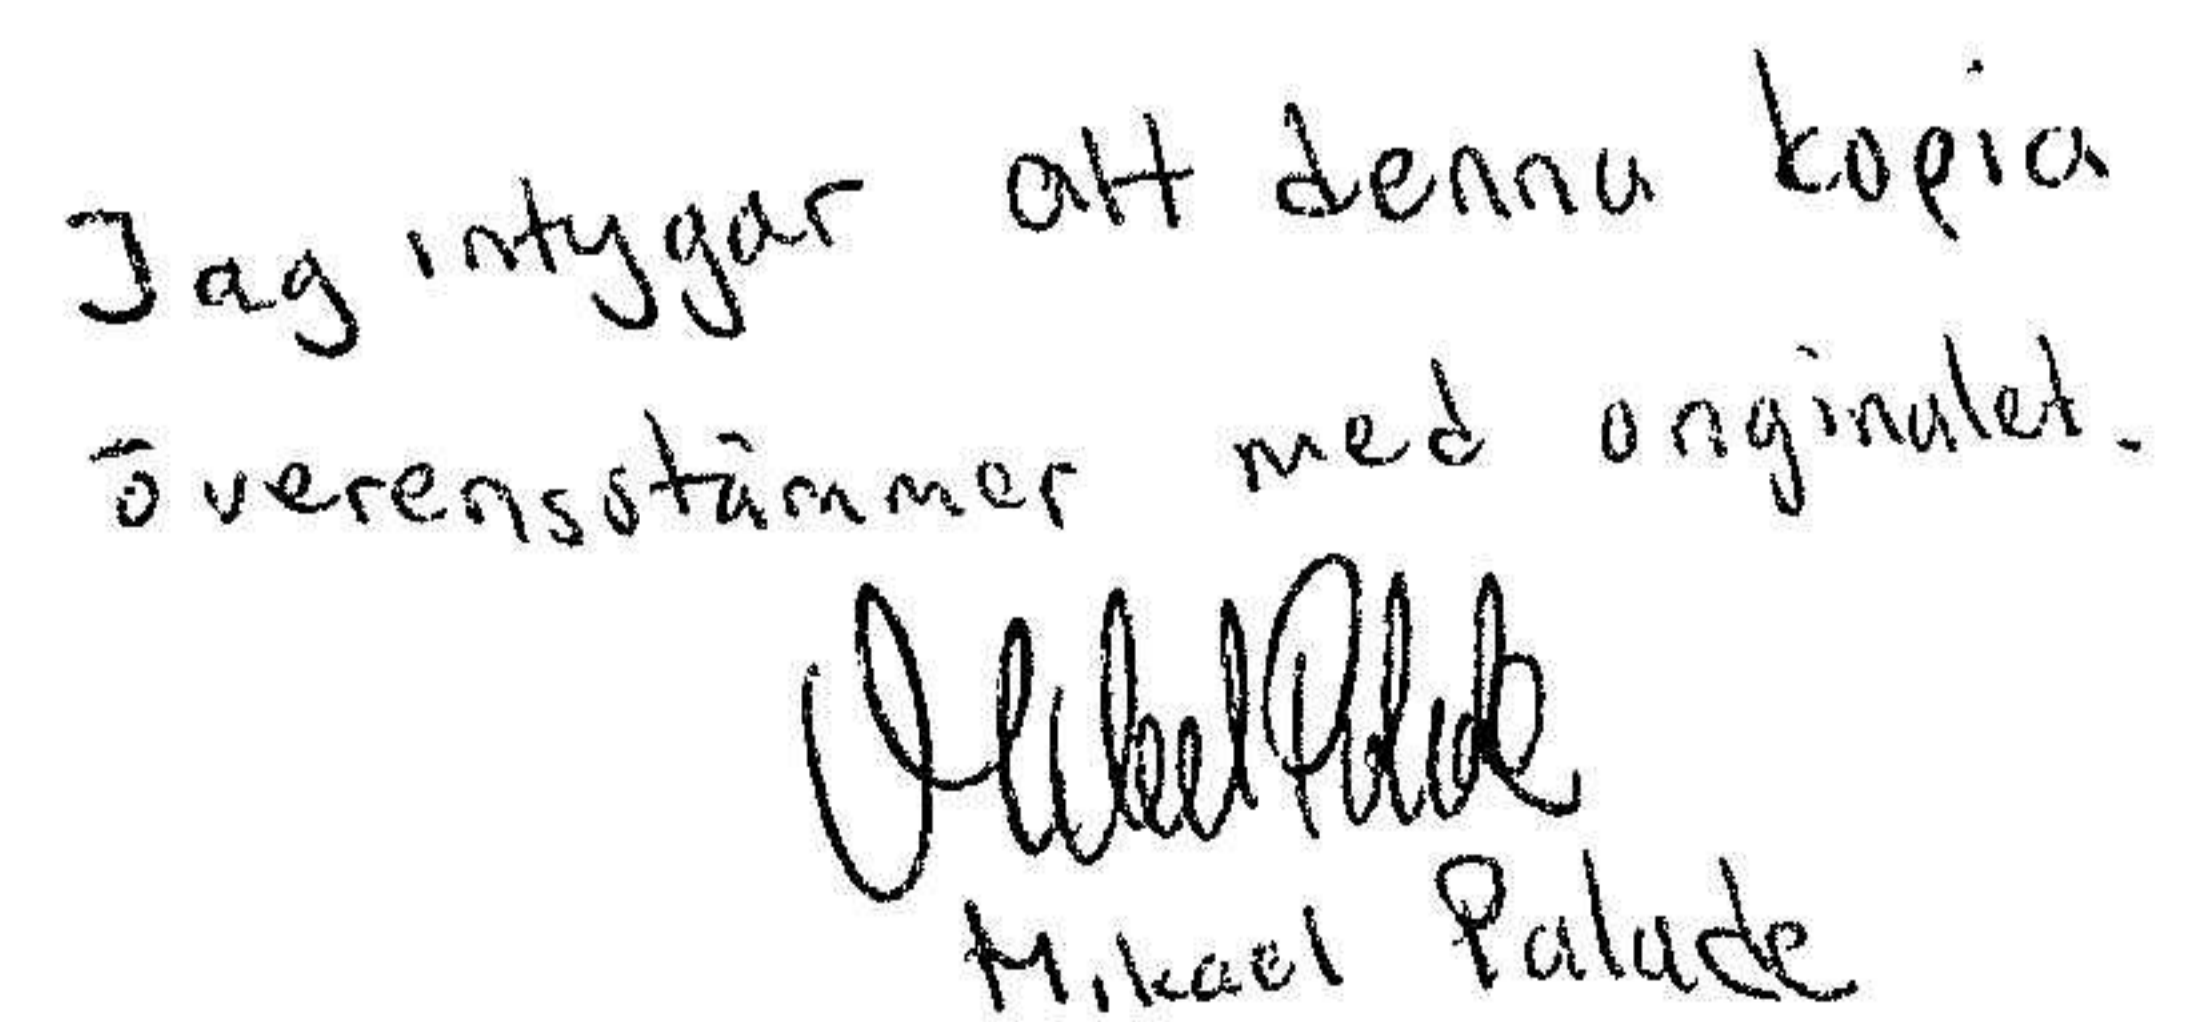 Jag intygar att denna kopia
överensstämmer med originalet.
Mikael Palade
Mikael Palade